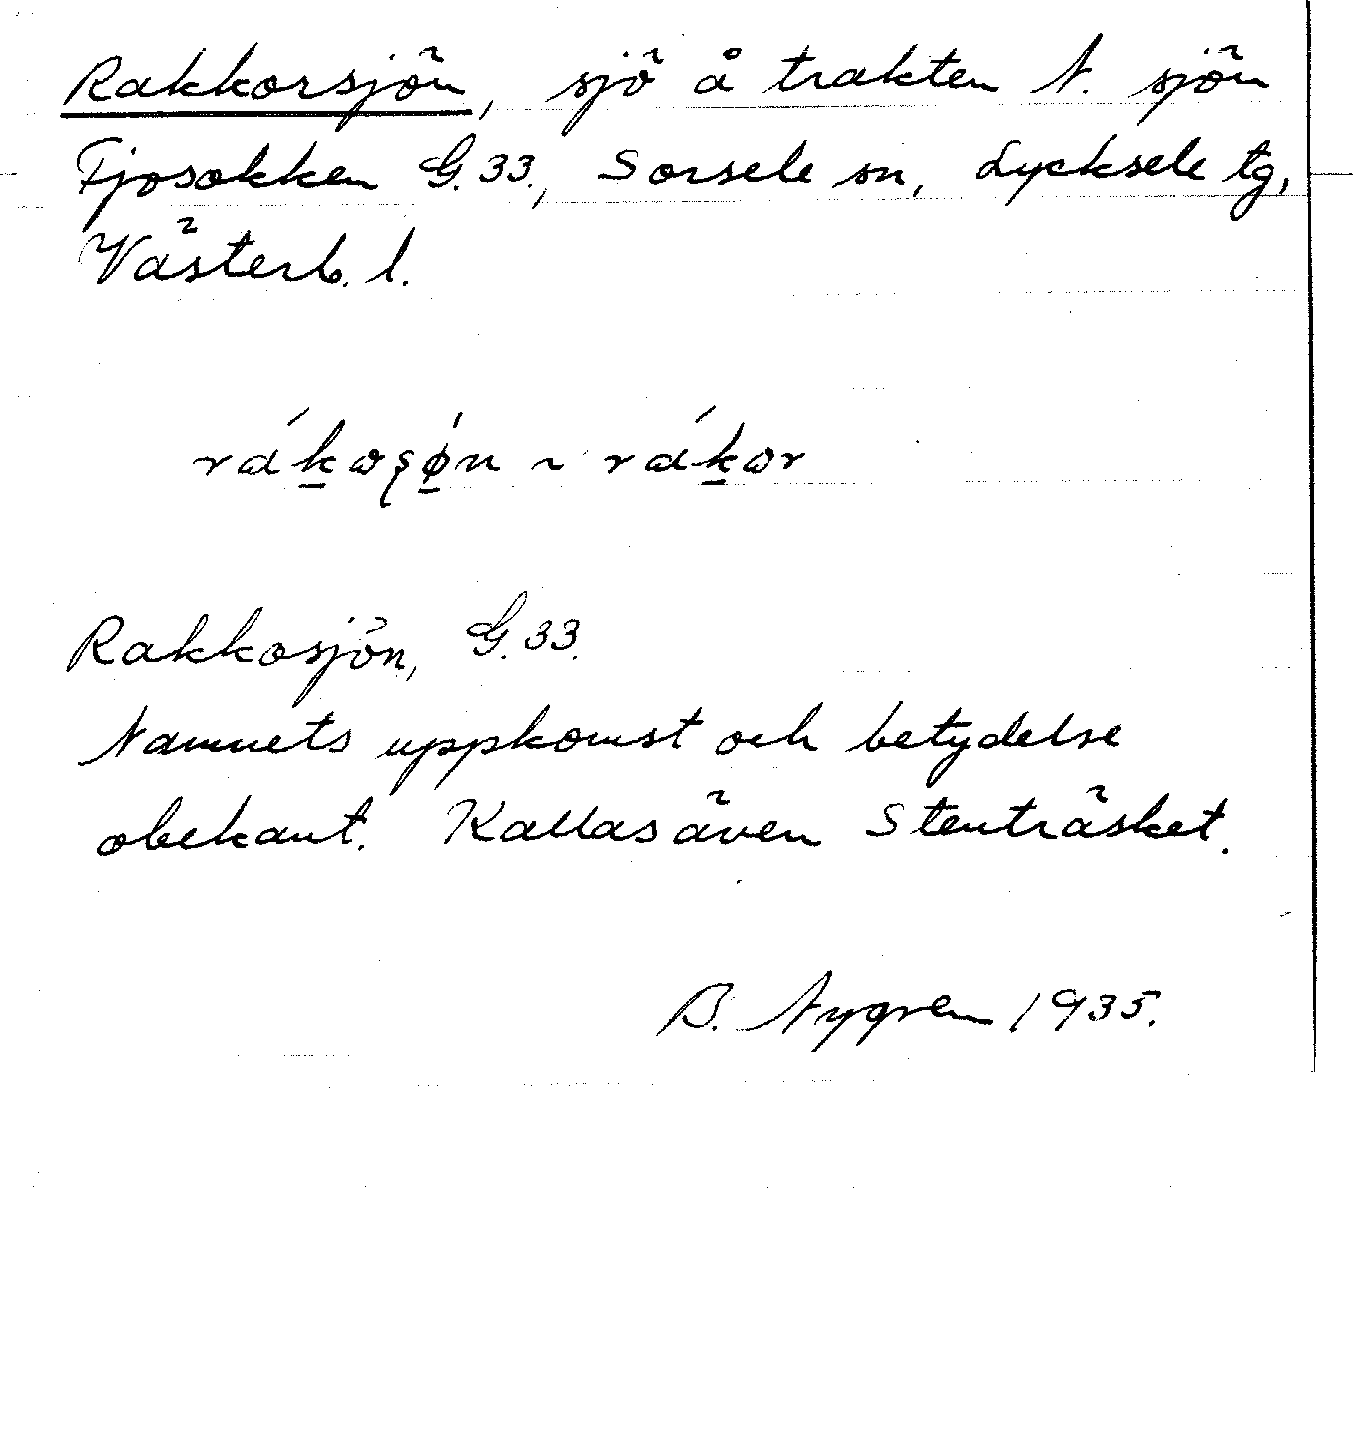 Rakkorsjön, sjö å trakten N. sjön
Fjosokken G.33., Sorsele sn, Lycksele tg,
Västerb. l.
rák̲oʂǿ̲n ~ rák̲or
Rakkosjön, G.33.
Namnets uppkomst och betydelse
obekant. Kallas även Stenträsket.
B. Nygren 1935.